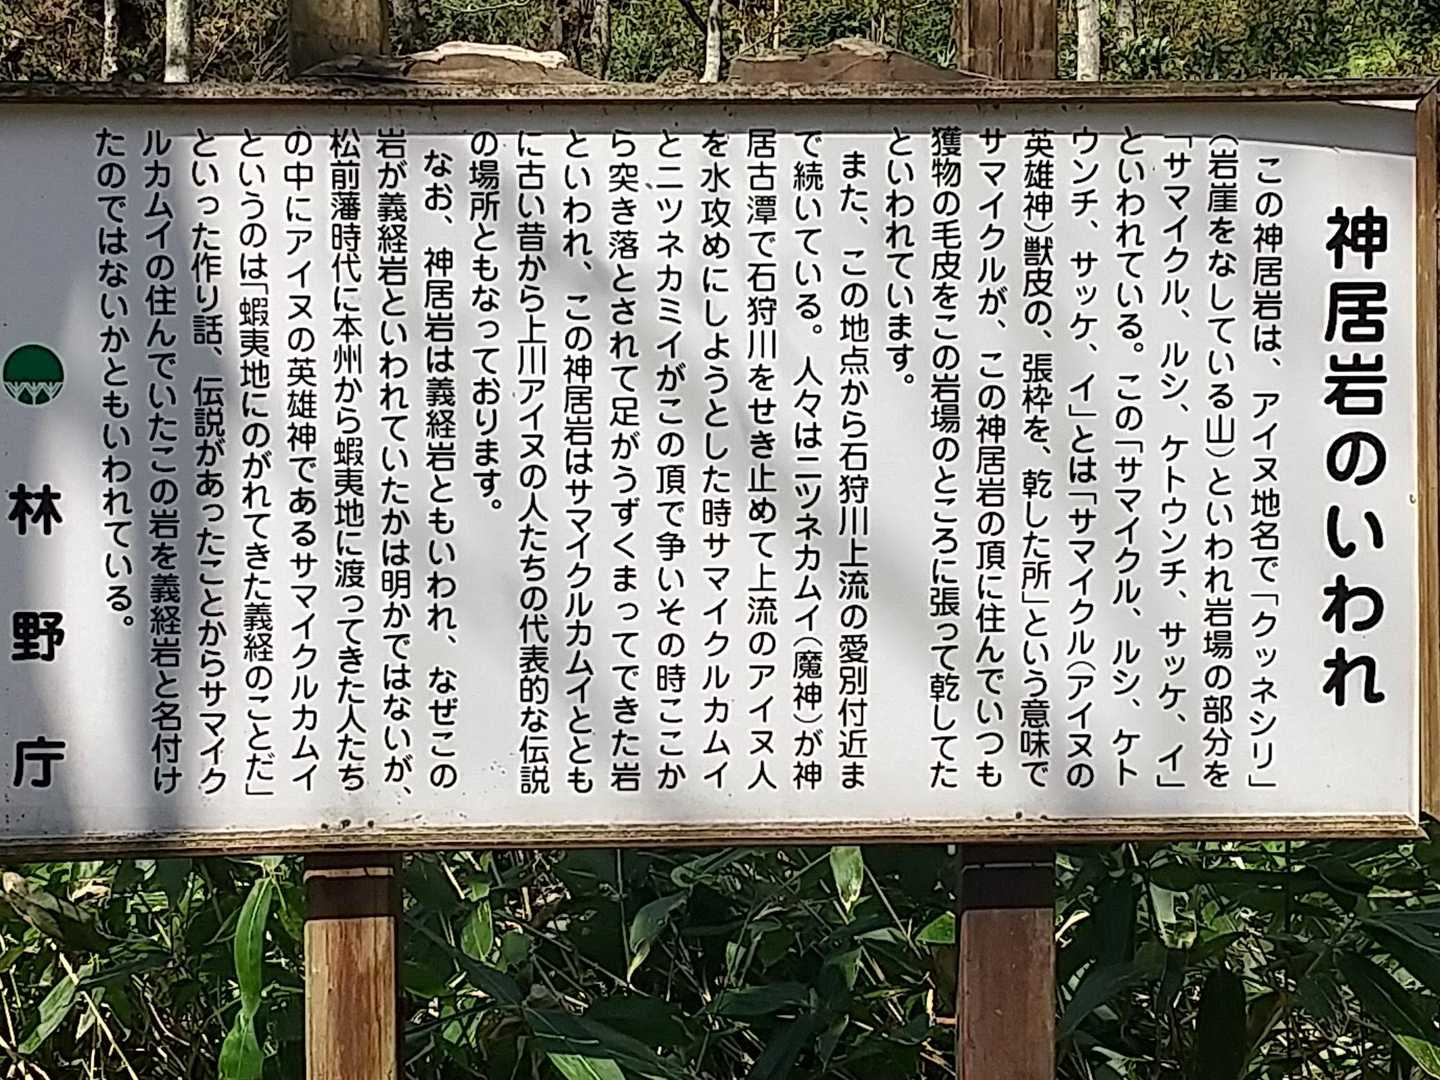 神居岩のいわれ
この神居岩は、アイヌ地名で「クッネシリ」
(岩崖をなしている山)といわれ岩場の部分を
「サマイクル、ルシ、ケトウンチ、サッケ、イ」
といわれている。この「サマイクル、ルシ、ケト
ウンチ、サッケ、イ」とは「サマイクル(アイヌの
英雄神)獣皮の、張枠を、乾した所」という意味で
サマイクルが、この神居岩の頂に住んでいつも
獲物の毛皮をこの岩場のところに張って乾してた
といわれています。
また、この地点から石狩川上流の愛別付近ま
で続いている。人々はニツネカムイ(魔神)が神
居古潭で石狩川をせき止めて上流のアイヌ人
を水攻めにしようとした時サマイクルカムイ
とニツネカミイがこの頂で争いその時ここか
ら突き落とされて足がうずくまってできた岩
といわれ、この神居岩はサマイクルカムイととも
に古い昔から上川アイヌの人たちの代表的な伝説
の場所ともなっております。
なお、神居岩は義経岩ともいわれ、なぜこの
岩が義経岩といわれていたかは明かではないが、
松前藩時代に本州から蝦夷地に渡ってきた人たち
の中にアイヌの英雄神であるサマイクルカムイ
というのは「蝦夷地にのがれてきた義経のことだ」
といった作り話、伝説があったことからサマイク
ルカムイの住んでいたこの岩を義経岩と名付け
たのではないかともいわれている。
林野庁